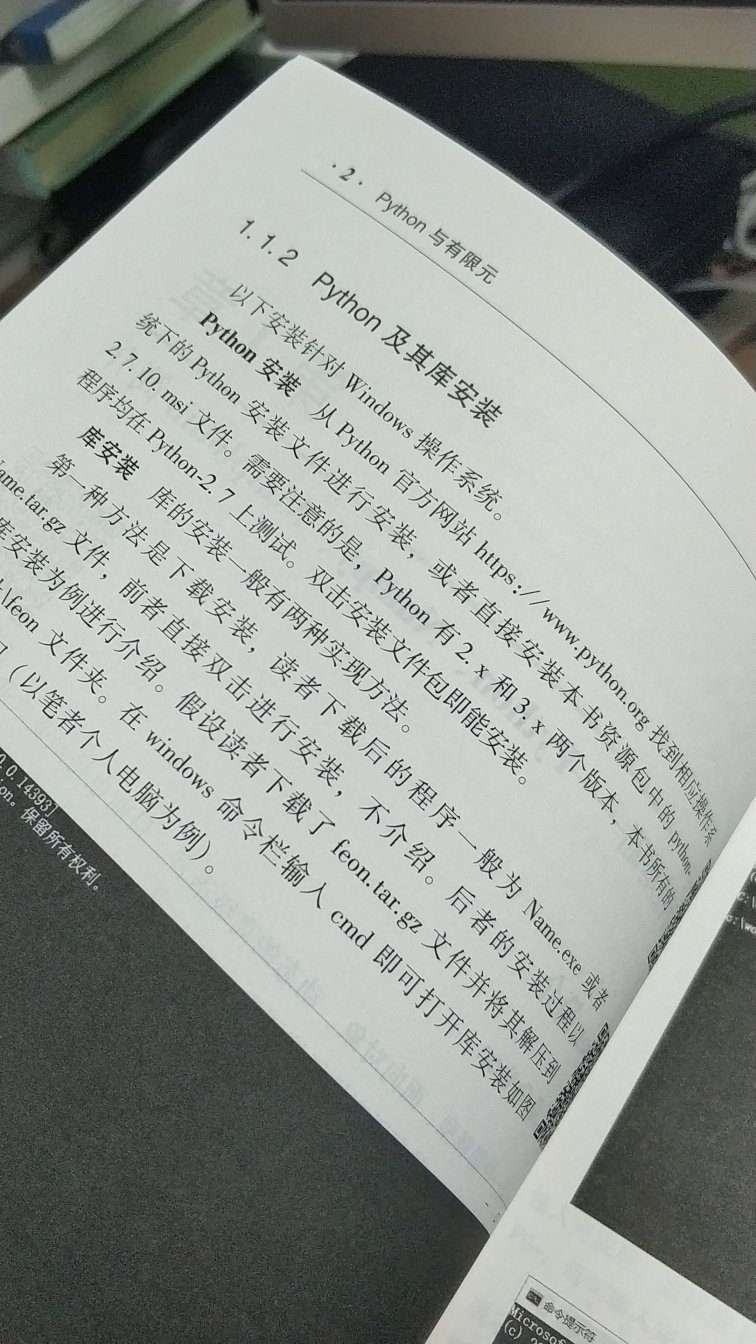 · 2 · Python 与有限元
1.1.2 Python 及其库安装
以下安装针对 Windows 操作系统。
Python 安装 从 Python 官方网站 https://www.python.org 找到相应操作系
统下的 Python 安装文件进行安装，或者直接安装本书资源包中的 python-
2.7.10.msi 文件。需要注意的是，Python 有 2.x 和 3.x 两个版本，本书所有的
程序均在 Python-2.7 上测试。双击安装文件包即能安装。
库安装 库的安装一般有两种实现方法。
第一种方法是下载安装，读者下载后的程序一般为 Name.exe 或者
ame.tar.gz 文件，前者直接双击进行安装，不介绍。后者的安装过程以
库安装为例进行介绍。假设读者下载了 feon.tar.gz 文件并将其解压到
\feon 文件夹。在 windows 命令栏输入 cmd 即可打开库安装如图
（以笔者个人电脑为例）。
0.14393]
ion。保留所有权利。
命令提示符
Microsof
(c) 2